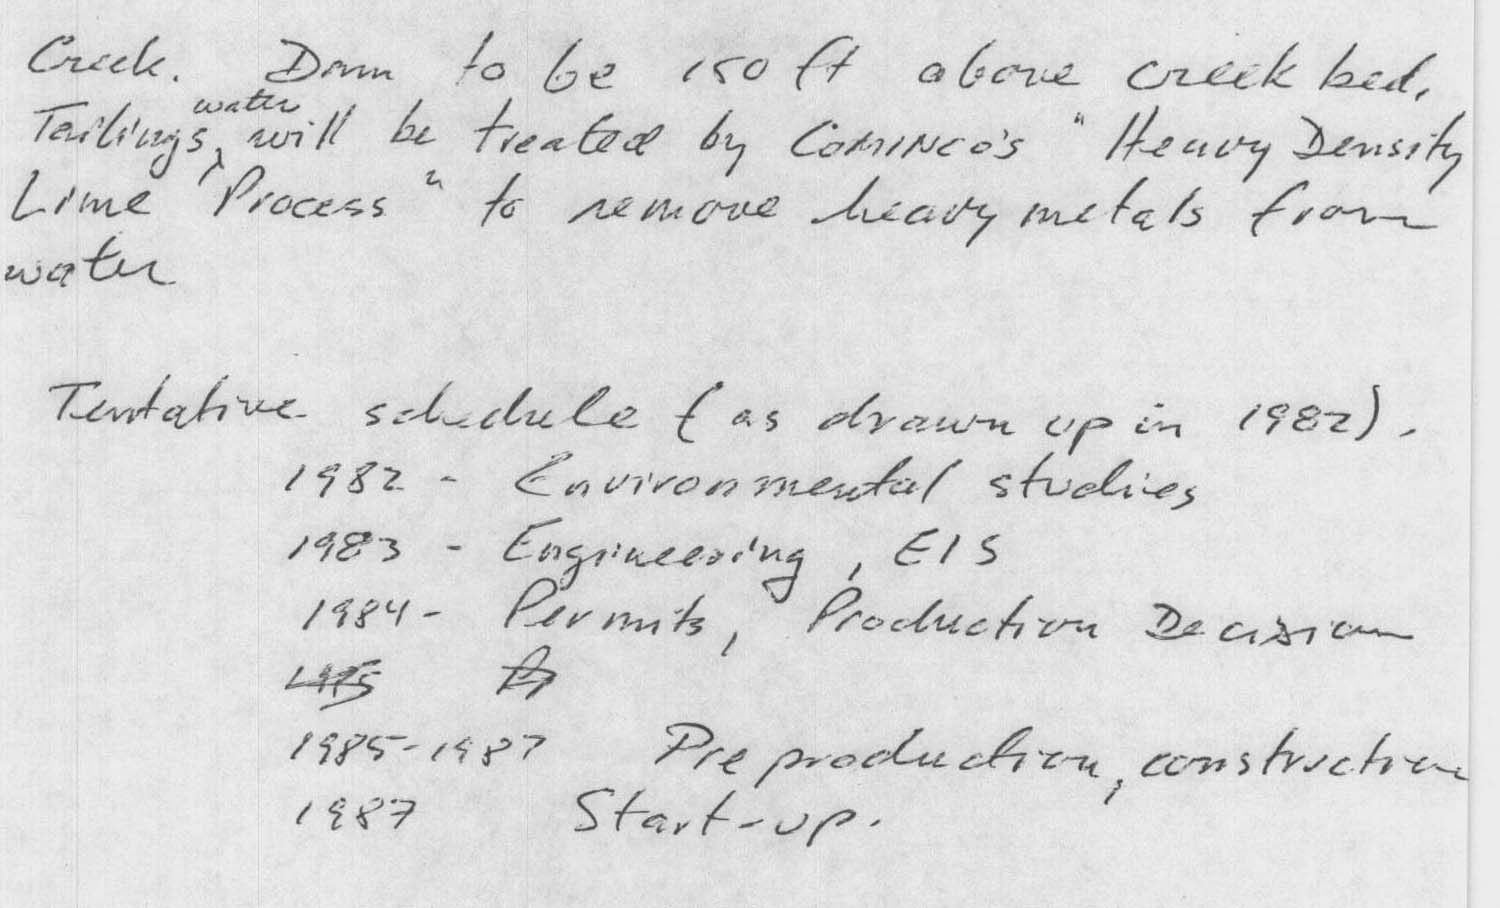 Creek. Dam to be 150 ft above creek bed.
Tailings water will be treated by COMINCO's "Heavy Density
Lime Process" to remove heavy metals from
water
Tentative schedule (as drawn up in 1982).
1982 - Environmental studies
1983 - Engineering, EIS
1984 - Permits, Production Decision
1985 Pr
1985-1987 Preproduction, construction
1987 Start-up.